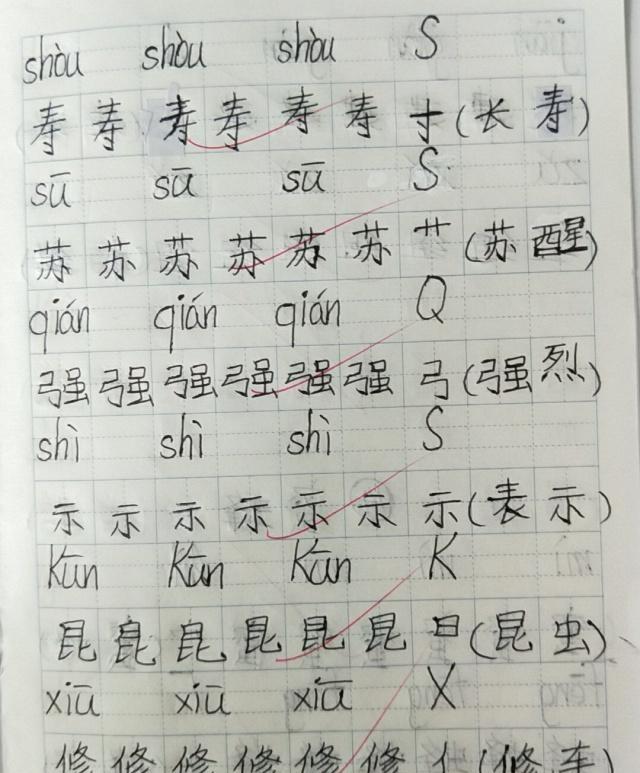 shòu shòu shòu S
寿 寿 寿 寿 寿 寿 寸 (长 寿)
sū sū sū S
苏 苏 苏 苏 苏 苏 艹 (苏 醒)
qián qián qián Q
强 强 强 强 强 强 弓 (强 烈)
shì shì shì S
示 示 示 示 示 示 示 (表 示)
Kūn Kūn Kūn K
昆 昆 昆 昆 昆 昆 日 (昆 虫)
xiū xiū xiū X
修 修 修 修 修 修 亻 (修 车)